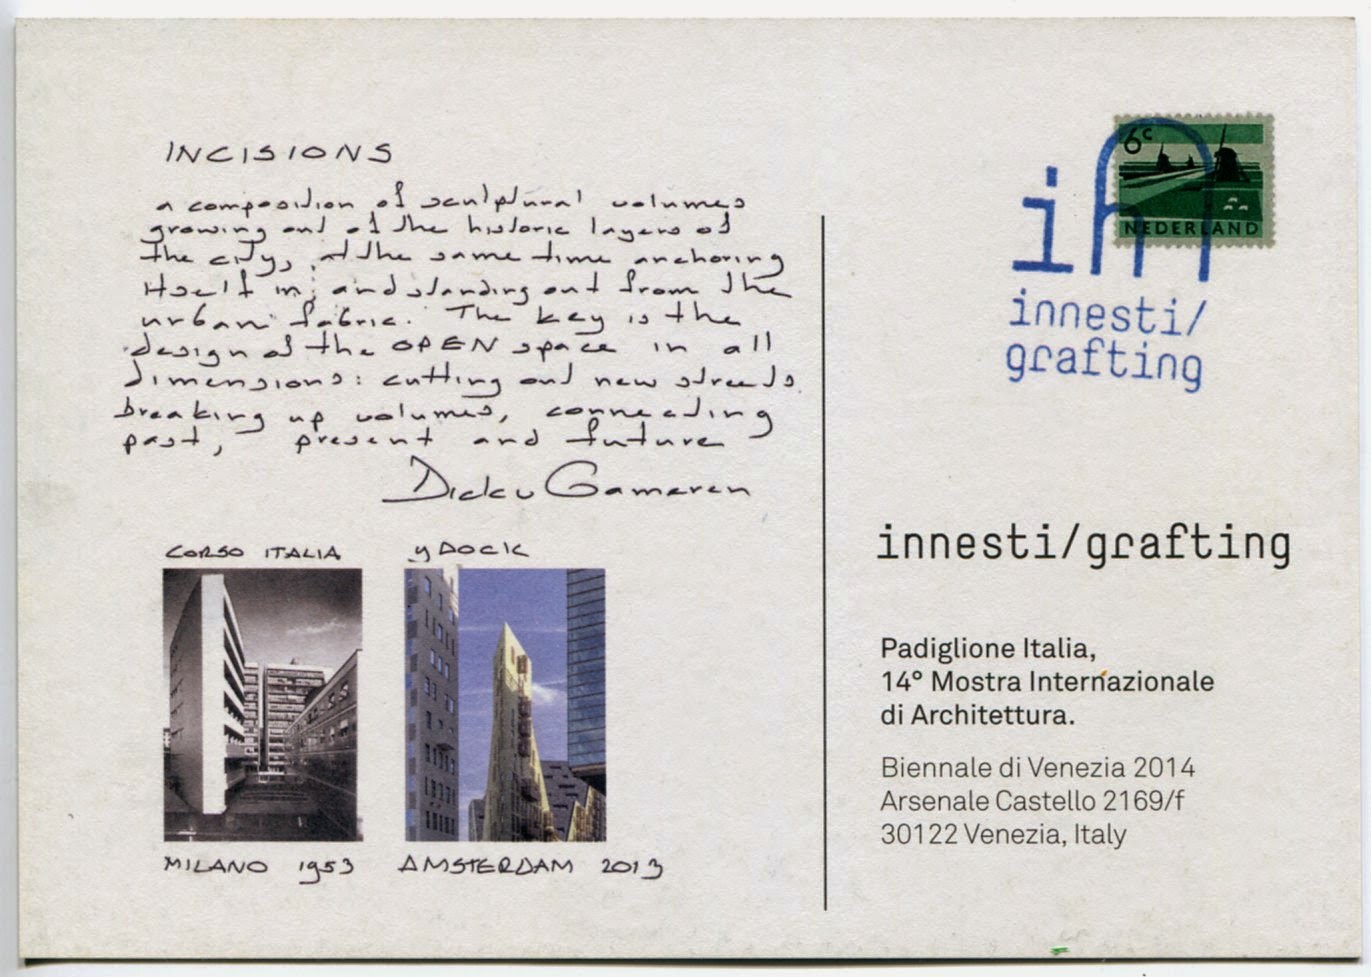 INCISIONS
a composition of sculptural volumes
growing out of the historic layers of
the city, at the same time anchoring
itself in, and standing out from the
urban fabric. The key is the
design of the OPEN space in all
dimensions: cutting out new streets
breaking up volumes, connecting
past, present and future
Dick v Gameren
CORSO ITALIA
yDOCK
MILANO 1953
AMSTERDAM 2013
6c
NEDERLAND
ih
innesti/
grafting
innesti/grafting
Padiglione Italia,
14° Mostra Internazionale
di Architettura.
Biennale di Venezia 2014
Arsenale Castello 2169/f
30122 Venezia, Italy